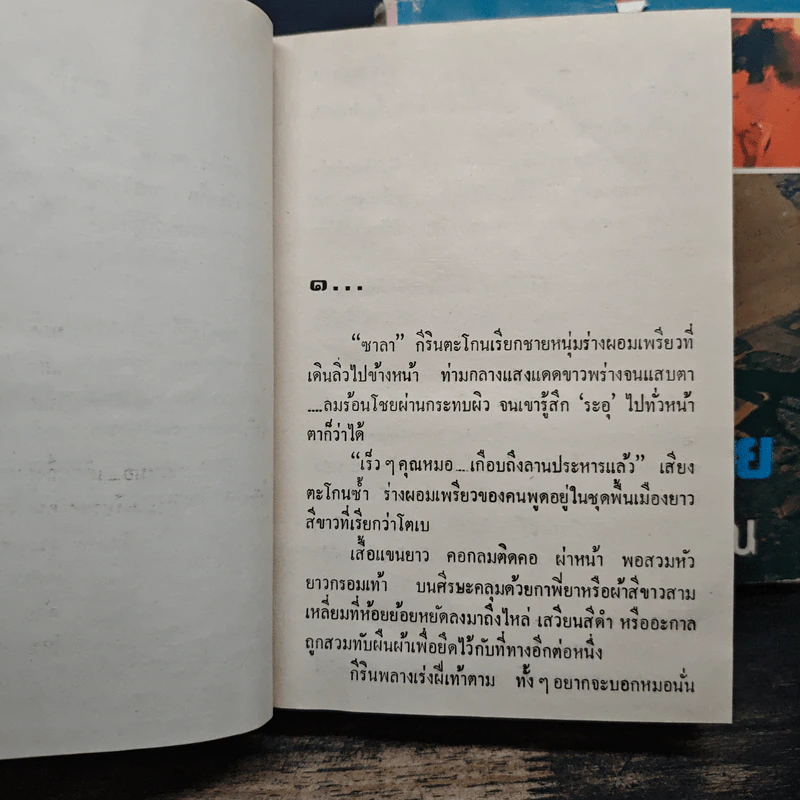 ๑...
“ซาลา” กีรินตะโกนเรียกชายหนุ่มร่างผอมเพรียวที่
เดินลิ่วไปข้างหน้า ท่ามกลางแสงแดดขาวพร่างจนแสบตา
....ลมร้อนโชยผ่านกระทบผิว จนเขารู้สึก ‘ระอุ’ ไปทั่วหน้า
ตาก็ว่าได้
“เร็วๆคุณหมอ....เกือบถึงลานประหารแล้ว” เสียง
ตะโกนซ้ำ ร่างผอมเพรียวของคนพูดอยู่ในชุดพื้นเมืองยาว
สีขาวที่เรียกว่าโตเบ
เสื้อแขนยาว คอกลมติดคอ ผ่าหน้า พอสวมหัว
ยาวกรอมเท้า บนศีรษะคลุมด้วยกาฟียาหรือผ้าสีขาวสาม
เหลี่ยมที่ห้อยย้อยหยัดลงมาถึงไหล่ เสวียนสีดำ หรืออะกาล
ถูกสวมทับผืนผ้าเพื่อยึดไว้กับที่ทางอีกต่อหนึ่ง
กีรินพลางเร่งฝีเท้าตาม ทั้งๆอยากจะบอกหมอนั่น
ย
น